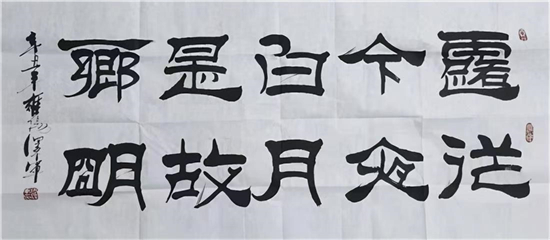 露從
今夜
白月
是故
鄉朙
辛丑年